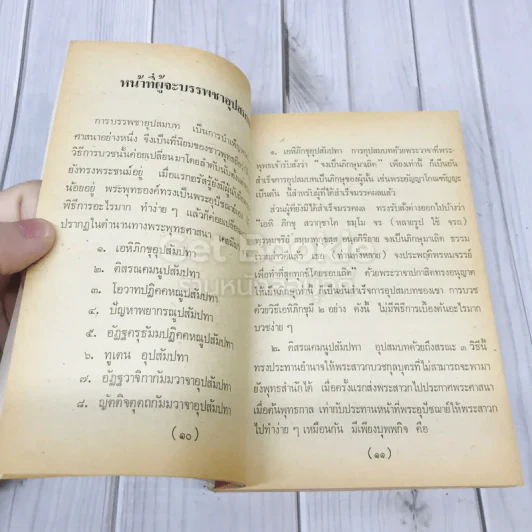 หน้าที่ผู้จะบรรพชาอุปสม
การบรรพชาอุปสมบท เป็นการบำเพ็
ศาสนาอย่างหนึ่ง จึงเป็นที่นิยมของชาวพุทธ
วิธีการบวชนั้นค่อยเปลี่ยนมาโดยลำดับ
ยังทรงพระชนม์อยู่ เมื่อแรกตรัสรู้ยังมี
น้อยอยู่ พระพุทธองค์ทรงเป็นพระอุปัชฌาย์
พิธีการอะไรมาก ทำง่าย ๆ แล้วก็ค่อย
ปรากฏในตำนานทางพระพุทธศาสนา
๑. เอหิภิกขุอุปสัมปทา
๒. ติสรณคมนูปสัมปทา
๓. โอวาทปฏิคคหณูปสัมปทา
๔. ปัญหาพยากรณูปสัมปทา
๕. อัฏฐครุธัมมปฏิคคหณูปสัมปทา
๖. ทูเตน อุปสัมปทา
๗. อัฏฐวาจิกากัมมวาจาอุปสัมปทา
๘. ญัตติจตุตถกัมมวาจาอุปสัมปทา
(๑๐)
๑. เอหิภิกขุอุปสัมปทา การอุปสมบทด้วยพระวาจาที่พระ
พุทธเจ้ารับสั่งว่า “จงเป็นภิกษุมาเถิด” เพียงเท่านี้ ก็เป็นอัน
สำเร็จการอุปสมบทเป็นภิกษุของผู้นั้น เช่นพระอัญญาโกณฑัญญะ
เป็นต้น นี้สำหรับผู้ที่ได้สำเร็จมรรคผลแล้ว
ส่วนผู้ที่ยังมิได้สำเร็จมรรคผล ก็ตรัสต่างออกไปบ้างว่า
“เอหิ ภิกขุ สวากฺขาโต ธมฺโม จร (หลายรูป ใช้ จรถ)
จงเป็นภิกษุมาเถิด ธรรม
(ท่านทั้งหลาย) จงประพฤติพรหมจรรย์
เพื่อทำที่สุดทุกข์โดยชอบเถิด” ด้วยพระวาจาปกาสิตทรงอนุญาต
ให้เป็นภิกษุเท่านั้น ก็เป็นอันสำเร็จการอุปสมบทของเขา การบวช
ด้วยวิธีเอหิภิกขุมี ๒ อย่าง ดังนี้ ไม่มีพิธีการเบื้องต้นอะไรมาก
บวชง่าย ๆ
๒. ติสรณคมนูปสัมปทา อุปสมบทด้วยถึงสรณะ ๓ วิธีนี้
ทรงประทานอำนาจให้พระสาวกบวชกุลบุตรที่ไม่สามารถจะพามา
ยังพุทธสำนักได้ เมื่อครั้งแรกส่งพระสาวกไปประกาศพระศาสนา
เมื่อต้นพุทธกาล เท่ากับประทานหน้าที่พระอุปัชฌาย์ให้พระสาวก
ไปทำง่าย ๆ เหมือนกัน มีเพียงบุพพกิจ คือ
(๑๑)